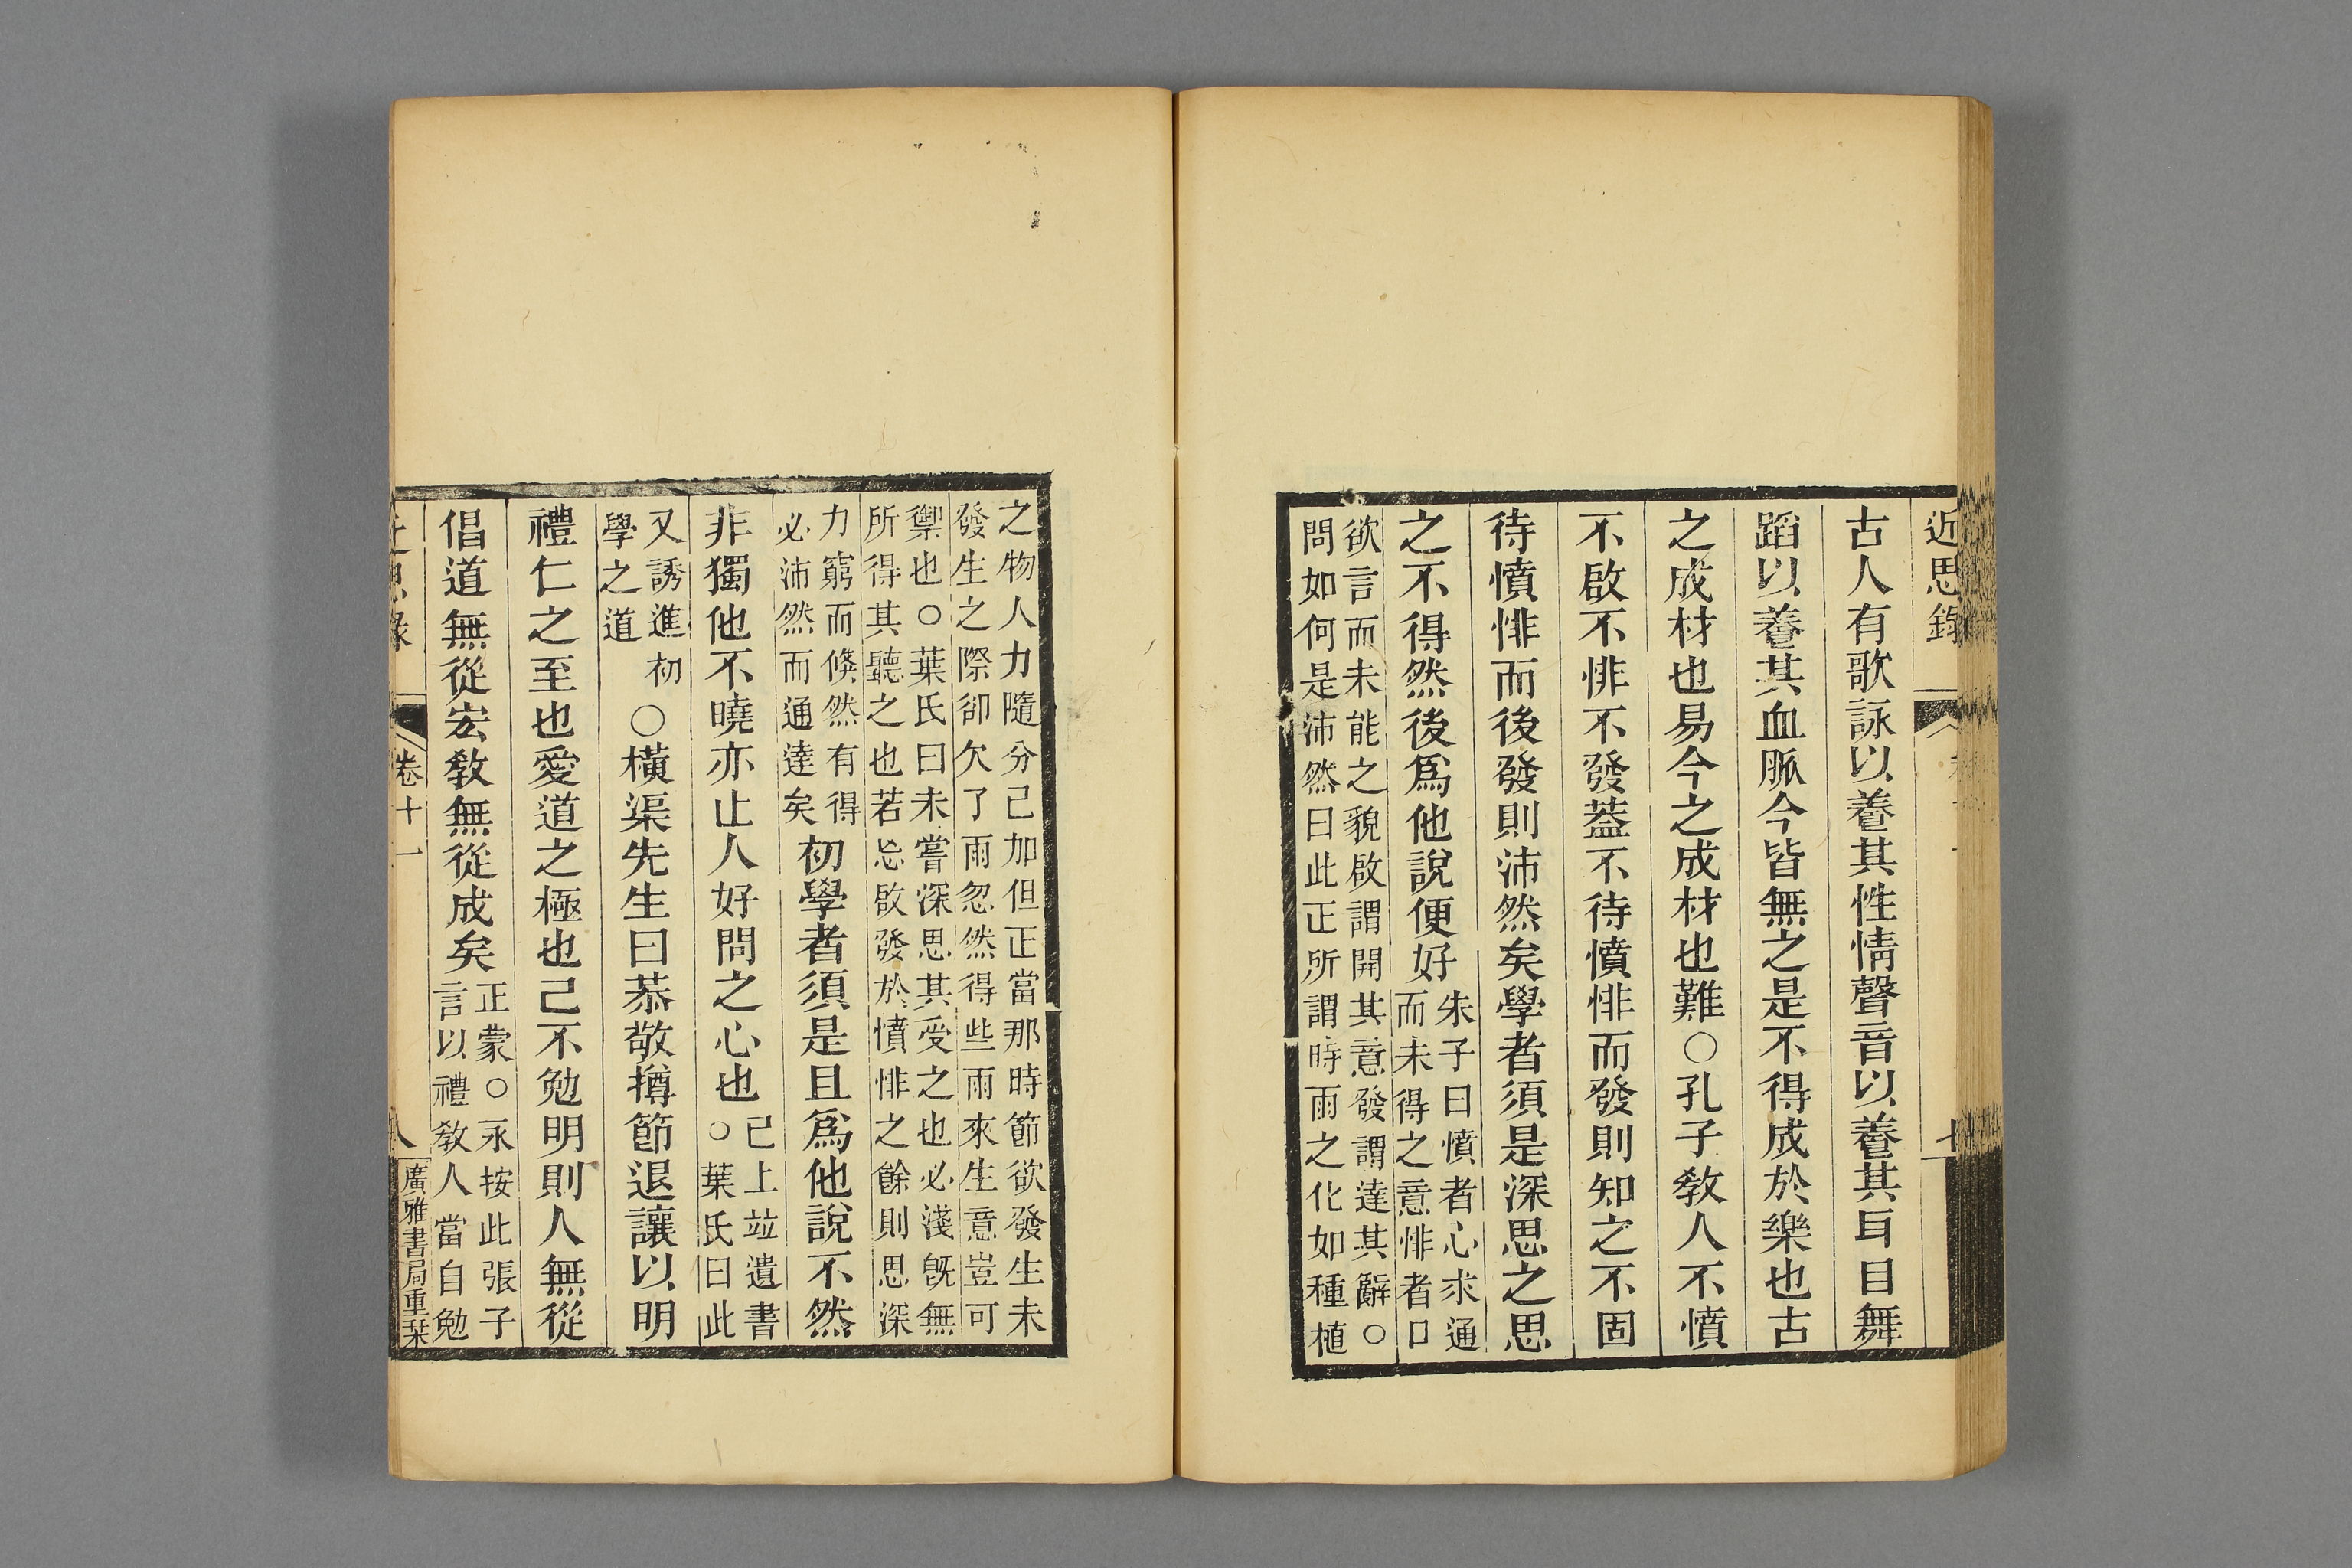 近思錄
古人有歌詠以養其性情聲音以養其耳目舞
蹈以養其血脈今皆無之是不得成於樂也古
之成材也易今之成材也難○孔子敎人不憤
不啟不悱不發蓋不待憤悱而發則知之不固
待憤悱而後發則沛然矣學者須是深思之思
之不得然後爲他說便好
朱子曰憤者心求通
而未得之意悱者口
欲言而未能之貌啟謂開其意發謂達其辭○
問如何是沛然曰此正所謂時雨之化如種植
之物人力隨分已加但正當那時節欲發生未
發生之際卻欠了雨忽然得些雨來生意豈可
禦也○葉氏曰未嘗深思其受之也必淺旣無
所得其聽之也若忘啟發於憤悱之餘則思深
力窮而倏然有得
必沛然而通達矣
初學者須是且爲他說不然
非獨他不曉亦止人好問之心也
已上竝遺書
○葉氏曰此
又誘進初
學之道
○橫渠先生曰恭敬撙節退讓以明
禮仁之至也愛道之極也己不勉明則人無從
倡道無從宏敎無從成矣
正蒙○永按此張子
言以禮敎人當自勉
卷十一
八
廣雅書局重栞